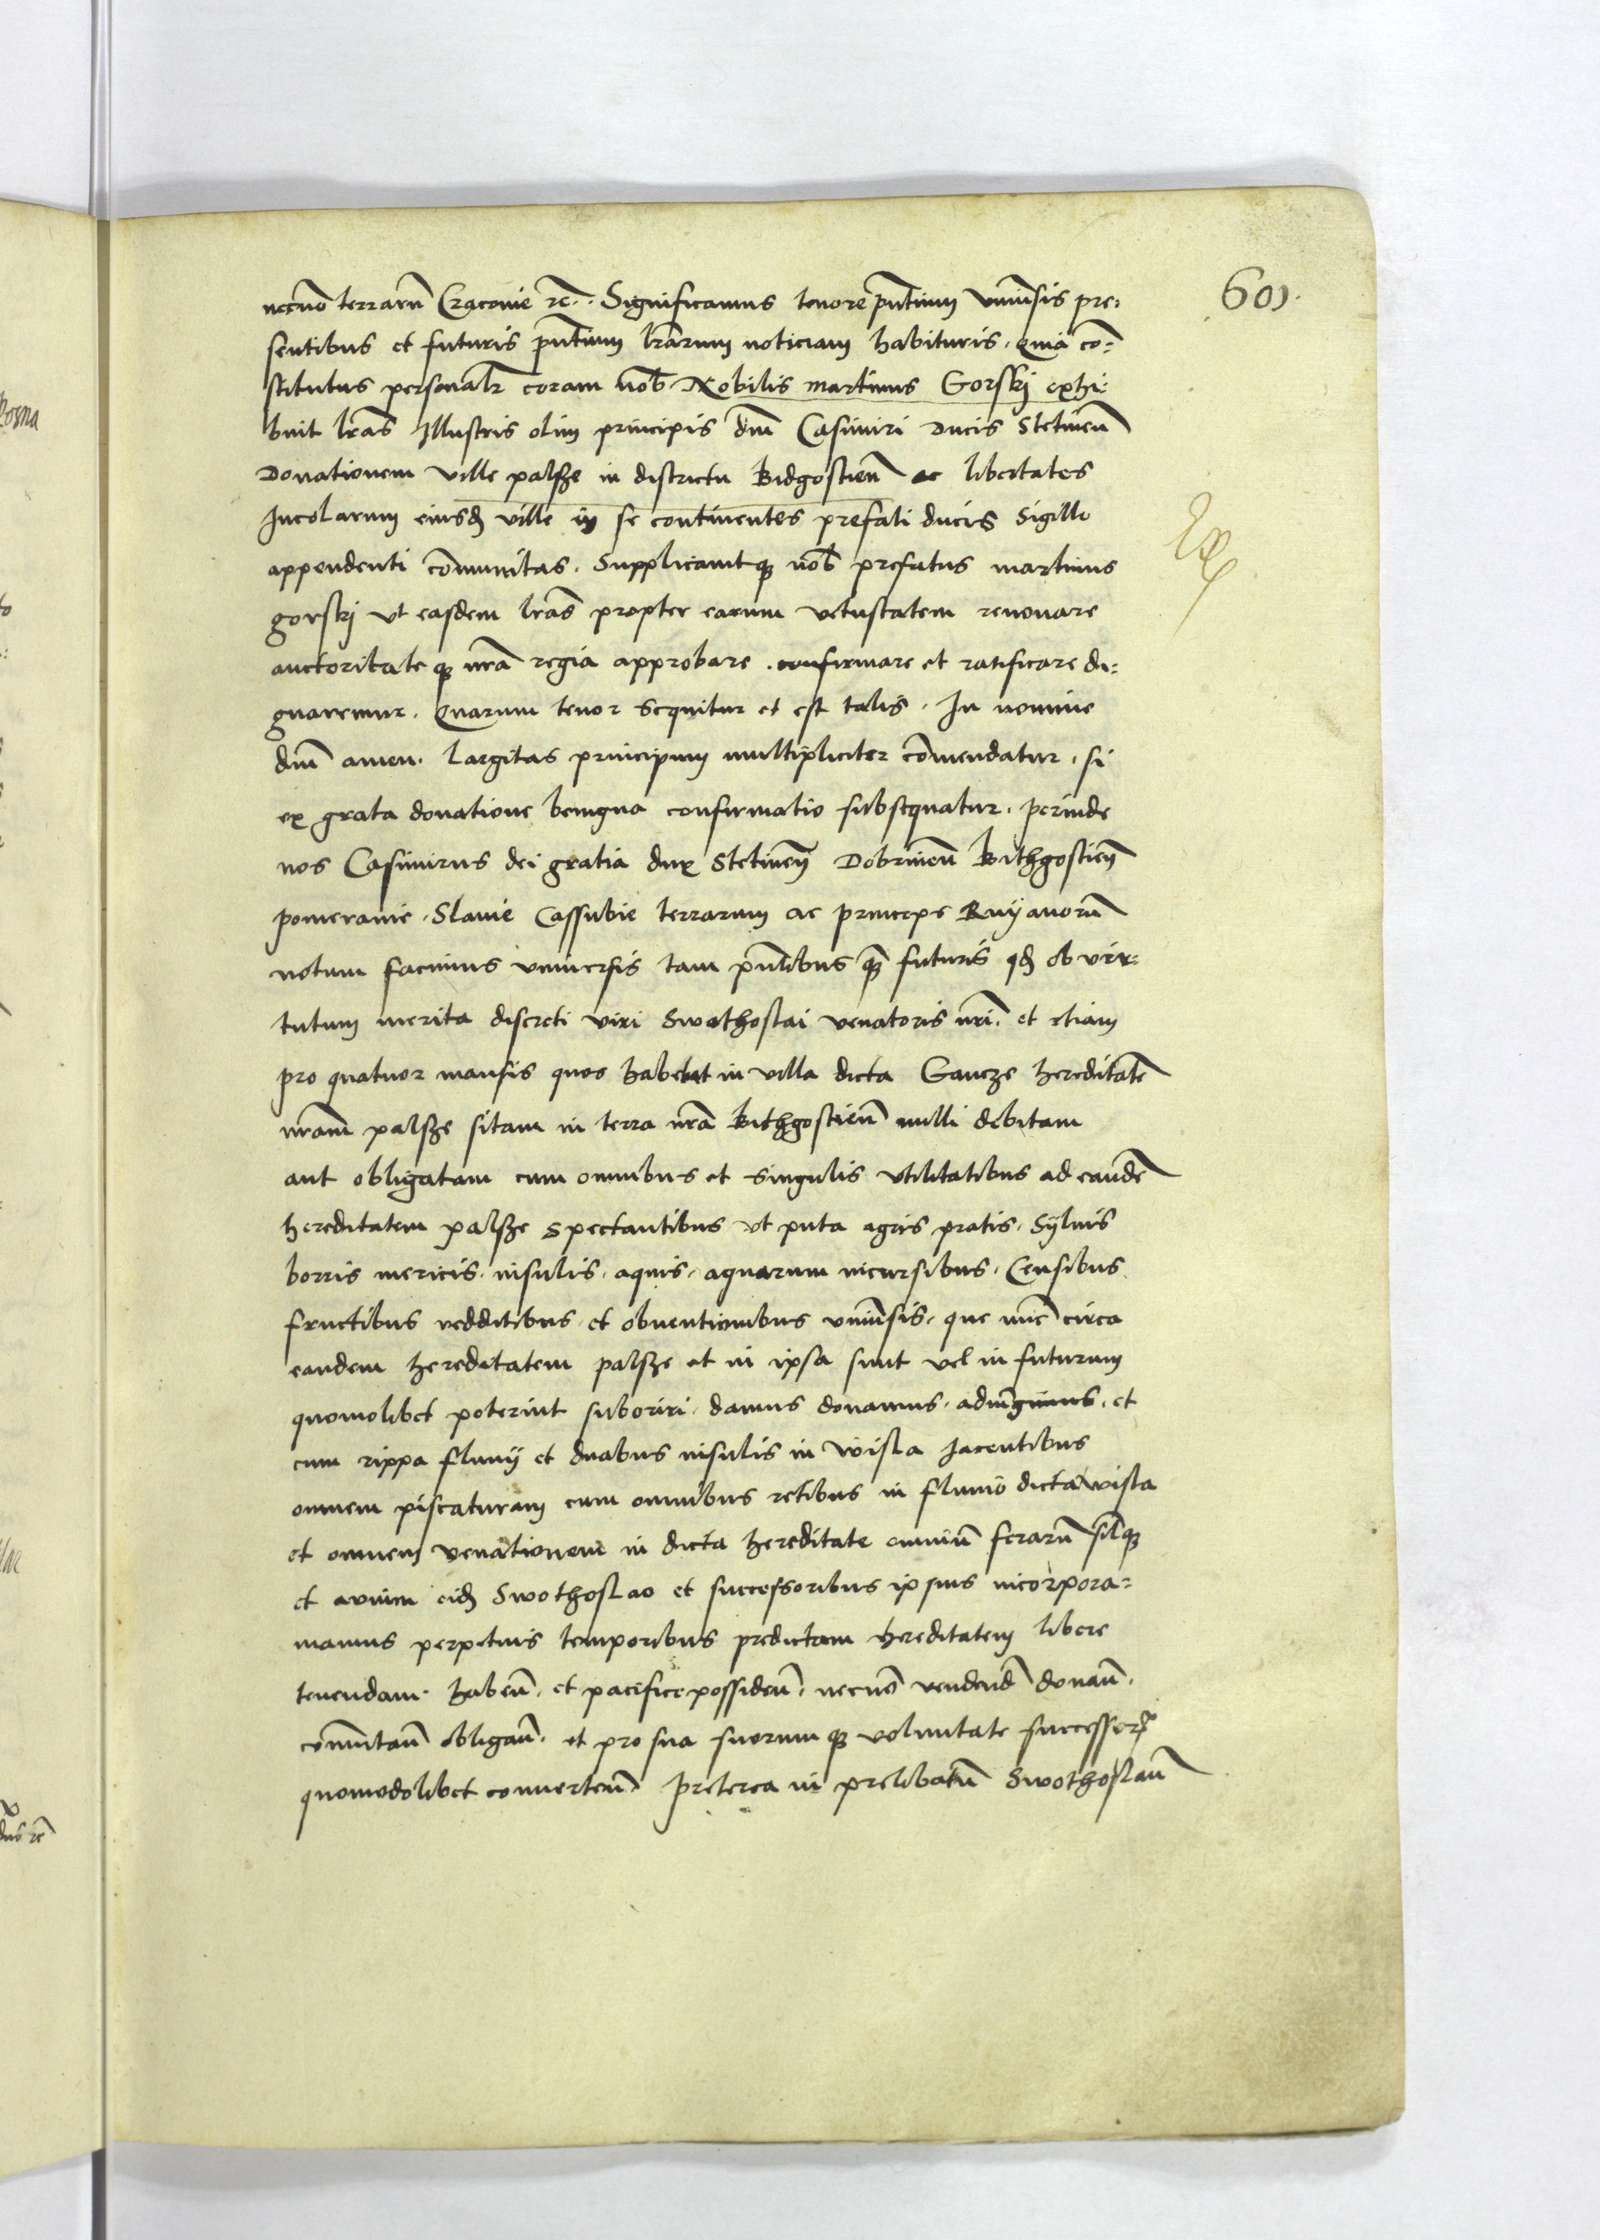 601.
necno terraru Cracovie rc. Significamus tenore pntium vniusis pre:
sentibus et futuris pntium lrarum noticiam habituris. Quia co:
stitutus personalr coram nob Nobilis martinus Gorskj exhi:
buit lras Illustris olim principis dni Casimiri Ducis Stetinen
Donationem ville palsze in districtu Bidgostien ac libertates
Incolarum eiusd ville in se continentes prefati ducis Sigillo
appendenti comunitas. Supplicauitq nob prefatus martinus
gorskj vt easdem lras propter earum vetustatem renovare
auctoritate q nra regia approbare. confirmare et ratificare di:
gnaremur. Quarum tenor sequitur et est talis. In nomine
dni amen. Largitas principum multipliciter comendatur. si
ex grata donatione benigna confirmatio subsequatur. perinde
nos Casimirus dei gratia dux Stetinen Dobrinen Bithgostien
pomeranie. Slauie Cassubie terrarum ac princeps Ruyanoru
notum facimus vniuersis tam pntibus q futuris qd ob vir:
tutum merita discreti viri Swothoslai venatoris nri. et etiam
pro quatuor mansis quos habebat in villa dicta Gancze hereditate
nram palsze sitam in terra nra Bithgostien nulli debitam
aut obligatam cum omnibus et singulis vtilitatibus ad eande
hereditatem palsze spectantibus vt puta agris pratis. Syluis
borris mericis. insulis. aquis. aquarum incursibus. Censibus
fructibus redditibus et obuentionibus vniusis. que nuc circa
eandem hereditatem palsze et in ipsa sunt vel in futurum
quomolibet poterint suboriri. damus donamus. et
cum rippa fluuij et duabus insulis in Wisla Jacentibus
omnem piscaturam cum omnibus retibus in flumio dicta wisla
et omnem venationem in dicta hereditate omniu feraru silq
et avium eid Swothoslao et successoribus ipsius incorpora:
mamus perpetuis temporibus predictam hereditatem libere
tenendam. haben. et pacifice possiden. necno vendend donan.
comutan obligan. et pro sua suorum q voluntate successor
quomodolibet conuerten. Preterea in prelibatu Swothoslau